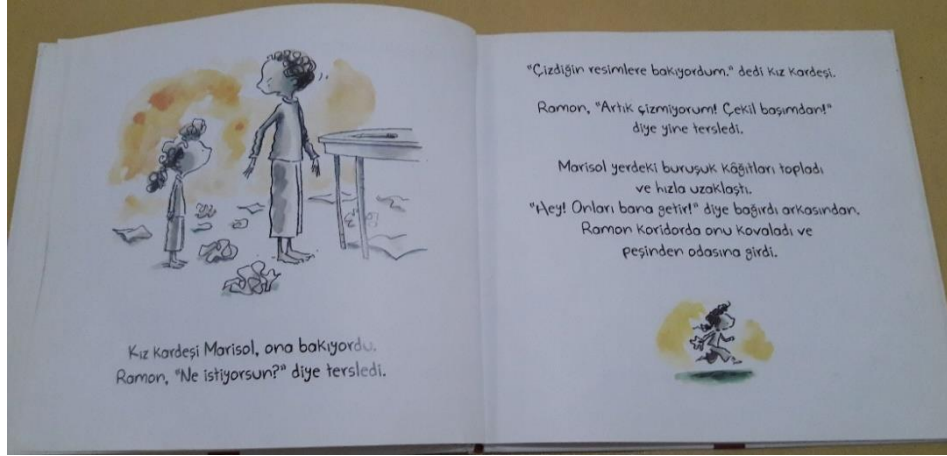 Kız kardeşi Marisol, ona bakıyordu.
Ramon, "Ne istiyorsun?" diye tersledi.
"Çizdiğin resimlere bakıyordum." dedi kız kardeşi.
Ramon, "Artık çizmiyorum! Çekil başımdan!"
diye yine tersledi.
Marisol yerdeki buruşuk kâğıtları topladı
ve hızla uzaklaştı.
"Hey! Onları bana getir!" diye bağırdı arkasından.
Ramon koridorda onu kovaladı ve
peşinden odasına girdi.